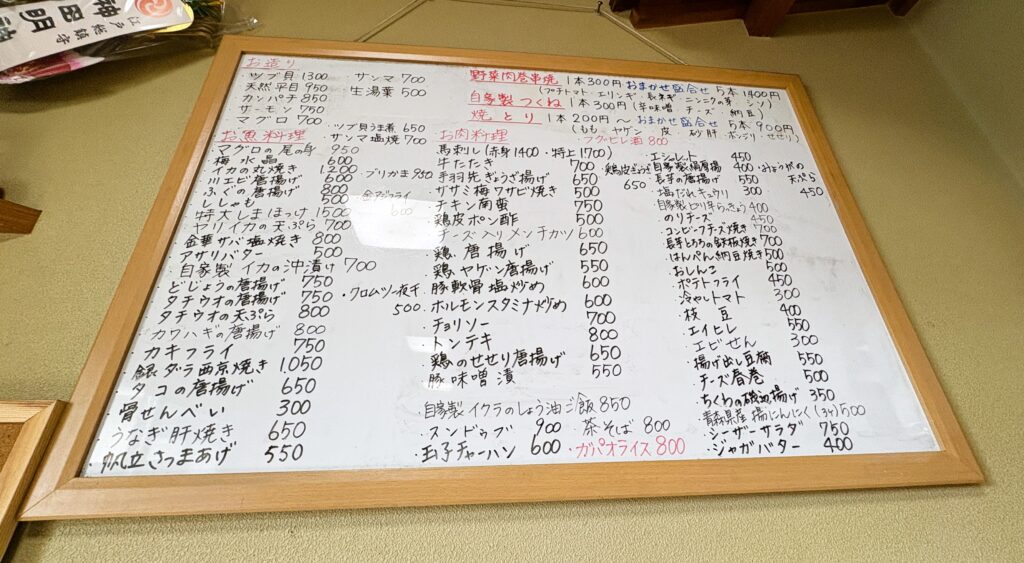 神田明神
江戸総鎮守
お造り
・ツブ貝 1300
天然平目 950
カンパチ 850
サーモン 750
マグロ 700
サンマ 700
生湯葉 500
お魚料理
・ツブ貝うま煮 650
・サンマ塩焼 700
マグロの尾の身 950
梅水晶 600
イカの丸焼き 1200
川エビ唐揚げ 600
ふぐの唐揚げ 800
ししゃも 500
特大しまほっけ 1500
ヤリイカの天ぷら 700
金華サバ塩焼き 800
アサリバター 500
自家製イカの沖漬け 700
どじょうの唐揚げ 750
タチウオの唐揚げ 750
タチウオの天ぷら 800
カワハギの唐揚げ 800
カキフライ 750
銀ダラ西京焼き 1050
タコの唐揚げ 650
骨せんべい 300
うなぎ肝焼き 650
帆立さつまあげ 550
ブリかま 950
金アジフライ
600
・クロムツ一夜干
500
野菜肉巻串焼 1本300円 おまかせ詰合せ 5本1400円
(プチトマト・エリンギ・長ネギ ニンニクの芽 シソ)
自家製つくね 1本300円 (辛味噌 チーズ 納豆)
焼とり 1本200円〜 おまかせ詰合せ 5本900円
(もも ヤゲン 皮 砂肝 ボンヂリ せせり)
・フグヒレ酒 800
お肉料理
馬刺し(赤身1400・特上1700)
牛たたき 700
手羽先ぎょうざ揚げ 650
ササミ梅ワサビ焼き 500
チキン南蛮 750
鶏皮ポン酢 500
チーズ入りメンチカツ 600
鶏唐揚げ 650
鶏ヤゲン唐揚げ 550
豚軟骨塩炒め 600
ホルモンスタミナ炒め 600
チョリソー 700
トンテキ 800
鶏のせせり唐揚げ 650
豚味噌漬 550
鶏皮ぎょうざ
650
・エシャレット 450
自家製 400
・みょうがの
天ぷら
450
長芋の唐揚げ 550
塩だれキュウリ 300
自家製ピリ辛らっきょう 400
のりチーズ 450
コンビーフチーズ焼き 700
長芋とろろの鉄板焼き 700
はんぺん納豆挟焼き 500
おしんこ 500
ポテトフライ 450
冷やしトマト 300
枝豆 400
エイヒレ 550
エビせん 300
揚げ出し豆腐 550
チーズ春巻 500
ちくわの磯辺揚げ 350
青森県産揚にんにく(3ケ) 500
シーザーサラダ 750
ジャガバター 400
自家製イクラのしょう油ご飯 850
・スンドゥブ 900
・茶そば 800
・玉子チャーハン 600
・ガパオライス 800